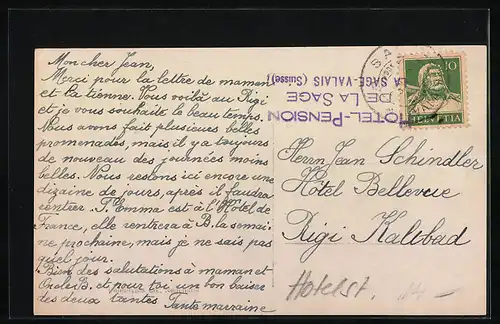 Mon cher Jean,
Merci pour la lettre de maman
et la tienne. Vous voilà au Rigi
et je vous souhaite le beau temps.
Nous avons fait plusieurs belles
promenades, mais il y a toujours
de nouveau des journées moins
belles. Nous restons ici encore une
dizaine de jours, après il faudra
rentrer. T. Emma est à l'Hôtel de
France, elle rentrera à B. la semai-
ne prochaine, mais je ne sais pas
quel jour.
Bien des salutations à maman et
Oncle B. et pour toi un bon baiser
des deux tantes. Tante marraine
HOTEL-PENSION
DE LA SAGE
LA SAGE-VALAIS (Suisse)
10
HELVETIA
Herrn Jean Schindler
Hôtel Bellevue
Rigi Kaltbad
Hotelst.
14 –